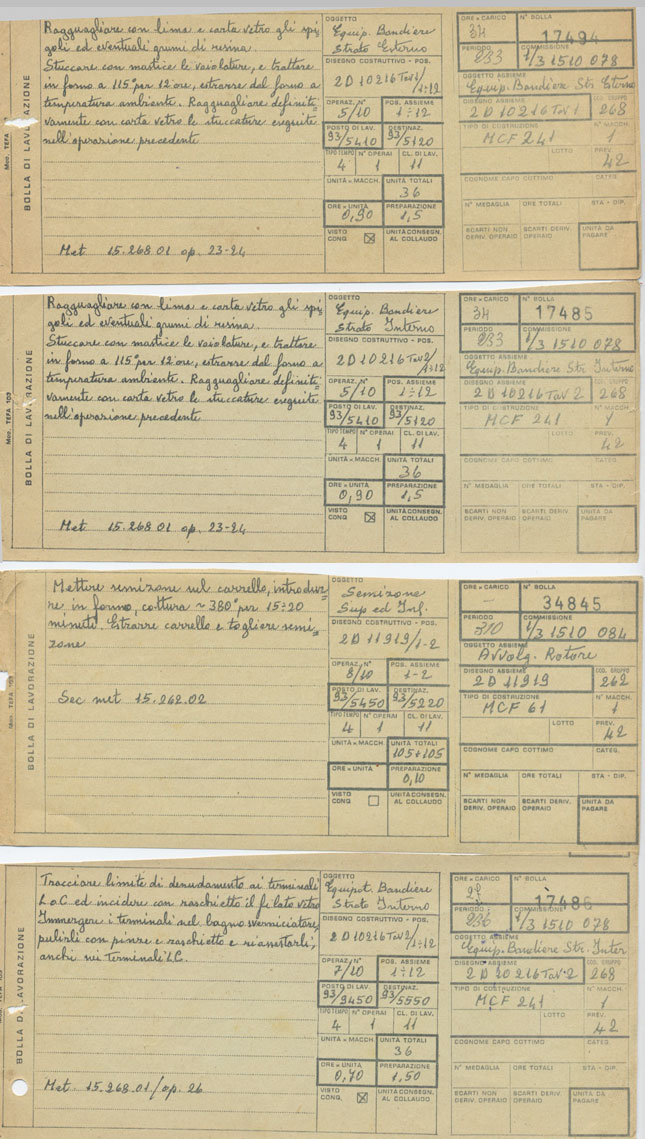 Mov. TEFA
BOLLA DI LAVORAZIONE
Ragguagliare con lima e carta vetro gli spi=
goli ed eventuali grumi di resina.
Stuccare con mastice le vaiolature, e trattare
in forno a 115° per 12 ore, estrarre dal forno a
temperatura ambiente. Ragguagliare definiti=
vamente con carta vetro le stuccature eseguite
nell'operazione precedente
Met 15.268.01 op. 23-24
OGGETTO
Equip. Bandiere
Strato Esterno
DISEGNO COSTRUTTIVO - POS.
2D 10216 Tav1/
1÷12
OPERAZ. N° POS. ASSIEME
5/10 1÷12
POSTO DI LAV. DESTINAZ.
93/5410 93/5120
TIPO TEMPO N° OPERAI CL. DI LAV.
4 1 11
UNITÀ = MACCH. UNITÀ TOTALI
36
ORE = UNITÀ PREPARAZIONE
0,90 1,5
VISTO CONG. UNITÀ CONSEGN. AL COLLAUDO
ORE = CARICO N° BOLLA
34 17494
PERIODO COMMISSIONE
233 1/3 1510 078
OGGETTO ASSIEME
Equip. Bandiere Str. Esterno
DISEGNO ASSIEME COD. GRUPPO
2D 10216 Tav 1 268
TIPO DI COSTRUZIONE N° MACCH.
MCF 241 1
LOTTO PREV.
42
COGNOME CAPO COTTIMO CATEG.
N° MEDAGLIA ORE TOTALI STA - DIP.
SCARTI NON DERIV. OPERAIO SCARTI DERIV. OPERAIO UNITÀ DA PAGARE
Mov. TEFA 103
BOLLA DI LAVORAZIONE
Ragguagliare con lima e carta vetro gli spi=
goli ed eventuali grumi di resina.
Stuccare con mastice le vaiolature, e trattare
in forno a 115° per 12 ore, estrarre dal forno a
temperatura ambiente. Ragguagliare definiti=
vamente con carta vetro le stuccature eseguite
nell'operazione precedente
Met 15.268.01 op. 23-24
OGGETTO
Equip. Bandiere
Strato Interno
DISEGNO COSTRUTTIVO - POS.
2D 10216 Tav2/
1÷12
OPERAZ. N° POS. ASSIEME
5/10 1÷12
POSTO DI LAV. DESTINAZ.
93/5410 93/5120
TIPO TEMPO N° OPERAI CL. DI LAV.
4 1 11
UNITÀ = MACCH. UNITÀ TOTALI
36
ORE = UNITÀ PREPARAZIONE
0,90 1,5
VISTO CONG. UNITÀ CONSEGN. AL COLLAUDO
ORE = CARICO N° BOLLA
34 17485
PERIODO COMMISSIONE
233 1/3 1510 078
OGGETTO ASSIEME
Equip. Bandiere Str. Interno
DISEGNO ASSIEME COD. GRUPPO
2D 10216 Tav 2 268
TIPO DI COSTRUZIONE N° MACCH
MCF 241 1
LOTTO PREV.
42
COGNOME CAPO COTTIMO CATEG.
N° MEDAGLIA ORE TOTALI STA - DIP.
SCARTI NON DERIV. OPERAIO SCARTI DERIV. OPERAIO UNITÀ DA PAGARE
Mov. TEFA 103
BOLLA DI LAVORAZIONE
Mettere semizone sul carrello, introdur=
re in forno, cottura ~ 380° per 15÷20
minuti. Estrarre carrello e togliere semi=
zone
Sec met 15.262.02
OGGETTO
Semizone
Sup ed Inf.
DISEGNO COSTRUTTIVO - POS.
2D 11919/1-2
OPERAZ. N° POS. ASSIEME
8/10 1-2
POSTO DI LAV. DESTINAZ.
93/5450 93/5220
TIPO TEMPO N° OPERAI CL. DI LAV.
4 1 11
UNITÀ = MACCH. UNITÀ TOTALI
105+105
ORE = UNITÀ PREPARAZIONE
0,10
VISTO CONG. UNITÀ CONSEGN. AL COLLAUDO
ORE = CARICO N° BOLLA
- 34845
PERIODO COMMISSIONE
310 1/3 1510 084
OGGETTO ASSIEME
Avvolg. Rotore
DISEGNO ASSIEME COD. GRUPPO
2D 11919 262
TIPO DI COSTRUZIONE N° MACCH.
MCF 61 1
LOTTO PREV.
42
COGNOME CAPO COTTIMO CATEG.
N° MEDAGLIA ORE TOTALI STA - DIP.
SCARTI NON DERIV. OPERAIO SCARTI DERIV. OPERAIO UNITÀ DA PAGARE
BOLLA DI LAVORAZIONE
Tracciare limite di denudamento ai terminali
L o C ed incidere con raschietto il filato vetro
Immergere i terminali nel bagno sverniciatore,
pulirli con pinze e raschietto e riassestarli,
anchi sui terminali LC.
Met. 15.268.01/op. 26
OGGETTO
Equipot. Bandiere
Strato Interno
DISEGNO COSTRUTTIVO - POS.
2D 10216 Tav2/
1÷12
OPERAZ. N° POS. ASSIEME
7/10 1÷12
POSTO DI LAV. DESTINAZ.
93/9450 93/5550
TIPO TEMPO N° OPERAI CL. DI LAV.
4 1 11
UNITÀ = MACCH. UNITÀ TOTALI
36
ORE = UNITÀ PREPARAZIONE
0,70 1,50
VISTO CONG. UNITÀ CONSEGN. AL COLLAUDO
ORE = CARICO N° BOLLA
17486
PERIODO COMMISSIONE
236 1/3 1510 078
OGGETTO ASSIEME
Equip. Bandiere Str. Inter
DISEGNO ASSIEME COD. GRUPPO
2D 10216 Tav.2 268
TIPO DI COSTRUZIONE N° MACCH.
MCF 241 1
LOTTO PREV.
42
COGNOME CAPO COTTIMO CATEG.
N° MEDAGLIA ORE TOTALI STA - DIP.
SCARTI NON DERIV. OPERAIO SCARTI DERIV. OPERAIO UNITÀ DA PAGARE